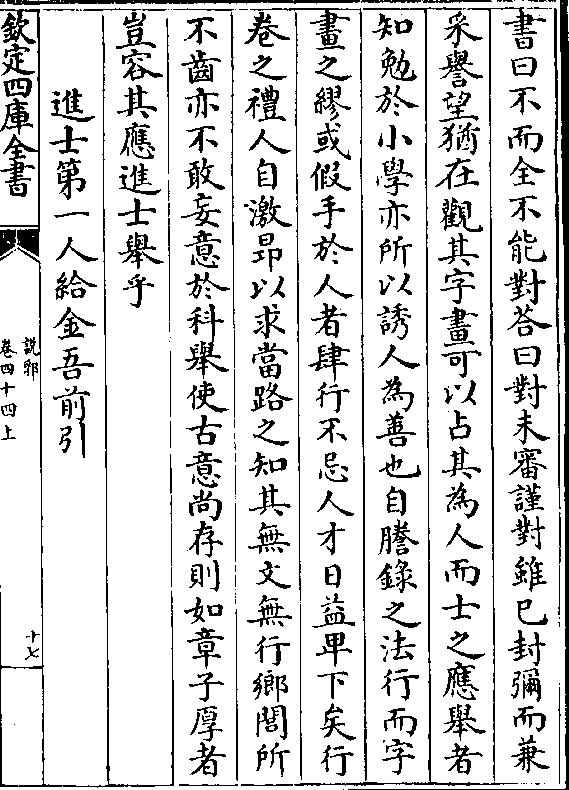 書曰不而全不能對答曰對未審謹對雖已封彌而兼
采譽望猶在觀其字畫可以占其為人而士之應舉者
知勉於小學亦所以誘人為善也自謄錄之法行而字
畫之繆或假手於人者肆行不忌人才日益卑下矣行
卷之禮人自激昂以求當路之知其無文無行鄉閭所
不齒亦不敢妄意於科舉使古意尚存則如章子厚者
豈容其應進士舉乎
進士第一人給金吾前引
欽定四庫全書
說郛
卷四十四上
十七